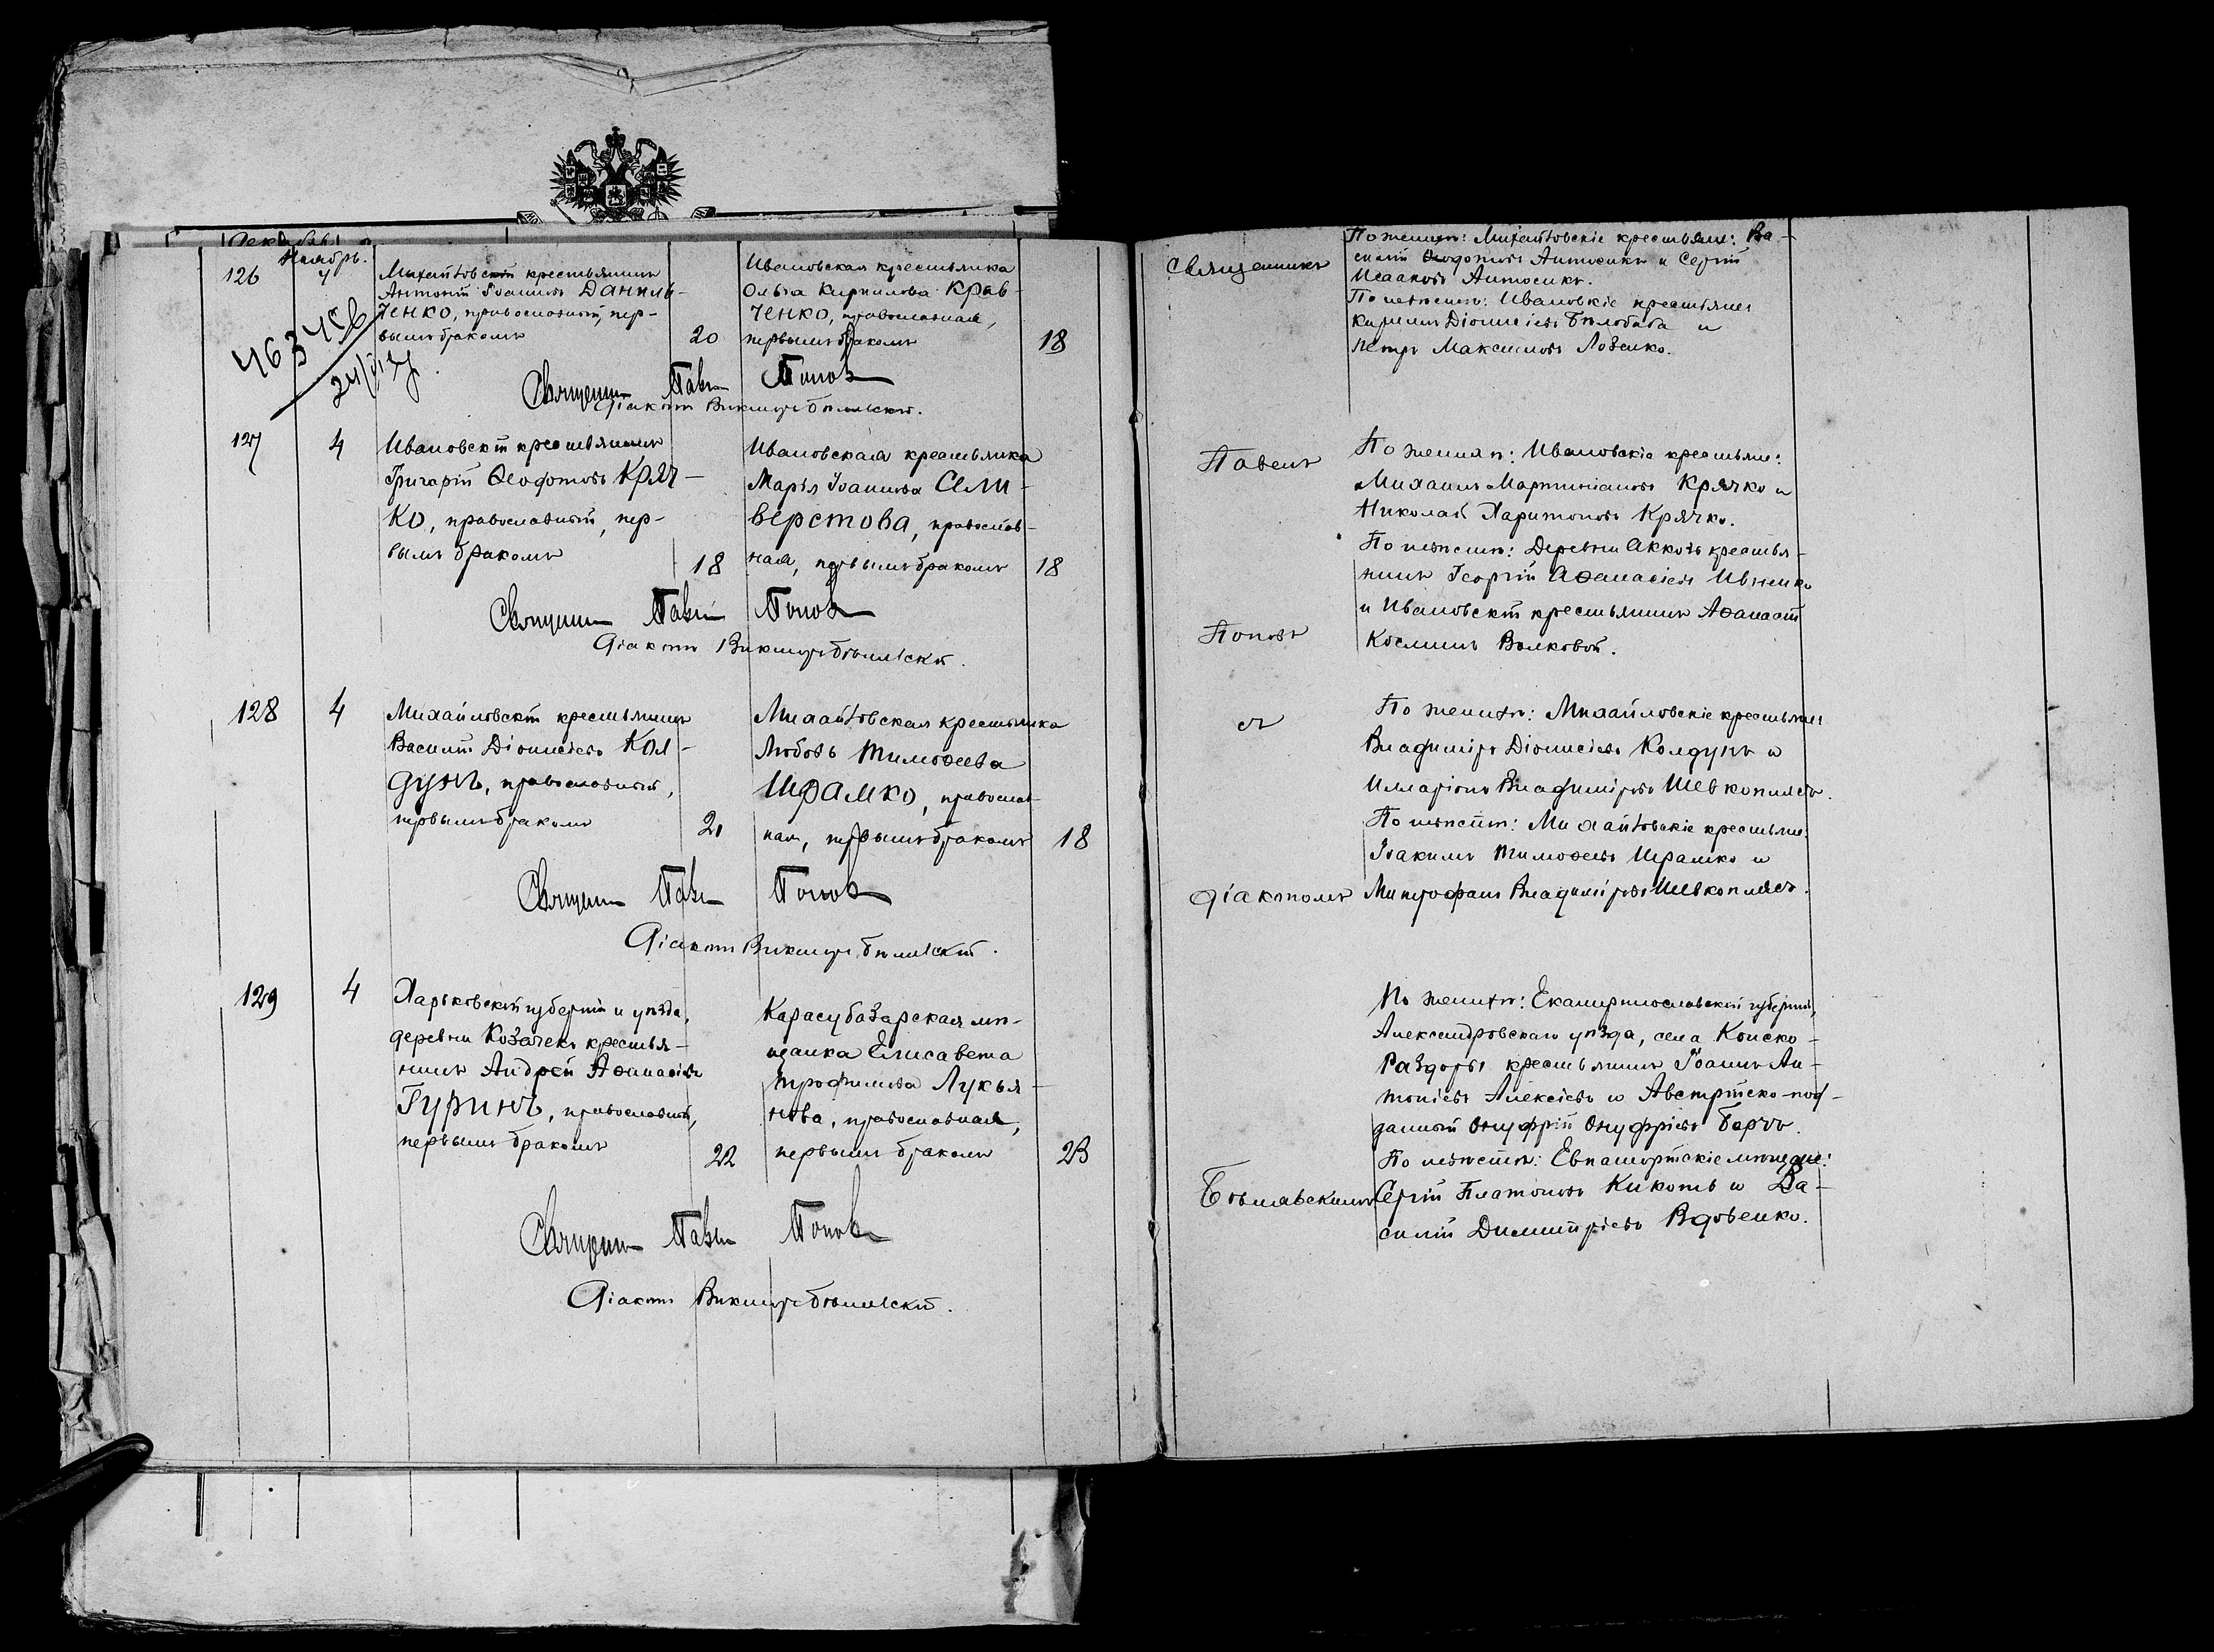 Ноябрь.
126
4
Михайловскій крестьянинъ
Антоній Іоанновъ Даниль-
ченко, православный, пер-
вымъ бракомъ
20
Ивановская крестьянка
Ольга Кирилова Крав-
ченко, православная,
первымъ бракомъ
18
46345
Священникъ Павелъ Поповъ
Діаконъ Викторъ Бѣльскій.
127
4
Ивановскій крестьянинъ
Григорій Ѳеодотовъ Кряч-
ко, православный, пер-
вымъ бракомъ
18
Ивановская крестьянка
Марія Іоаннова Сели-
верстова, православ-
ная, первымъ бракомъ
18
Священникъ Павелъ Поповъ
Діаконъ Викторъ
128
4
Михайловскій крестьянинъ
Василій Діонисіевъ Кол-
дунъ, православный,
первымъ бракомъ
21
Михайловская крестьянка
Любовь Тимоѳеева
Шрамко, православ-
ная, первымъ бракомъ
18
Священникъ Павелъ Поповъ
Діаконъ Викторъ
129
4
Харьковской губерніи и уѣзда,
деревни Козачекъ крестья-
нинъ Андрей Аѳанасіевъ
Гуринъ, православный,
первымъ бракомъ
22
Карасубазарская мѣ-
щанка Елисавета
Трофимова Лукья-
нова, православная,
первымъ бракомъ
23
Священникъ Павелъ Поповъ
Діаконъ Викторъ
Священникъ
По женихѣ: Михайловскіе крестьяне: Ва-
силій Ѳеодотовъ Антосикъ и Сергій
Исааковъ Антосикъ.
По невѣстѣ: Ивановскіе крестьяне
Кириллъ Діонисіевъ Бѣлобаба и
Петръ Максимовъ Лозенко.
Павелъ
По женихѣ: Ивановскіе крестьяне:
Михаилъ Мартиніановъ Крячко и
Николай Харитоновъ Крячко.
По невѣстѣ: Деревни Аккозъ крестья-
нинъ Георгій Аѳанасіевъ Ивненко
и Ивановскій крестьянинъ Аѳанасій
Косминъ Волковой.
Поповъ
съ
По женихѣ: Михайловскіе крестьяне
Владиміръ Діонисіевъ Колдунъ и
Илларіонъ Владиміровъ Шевкоплясъ.
По невѣстѣ: Михайловскіе крестьяне:
Іоакимъ Тимоѳеевъ Шрамко и
діакономъ
Митрофанъ Владиміровъ Шевкоплясъ.
По женихѣ: Екатеринославской губерніи,
Александровскаго уѣзда, села Конско-
Раздоры крестьянинъ Іоаннъ Ан-
тоніевъ Алексіевъ и Австрійско-под-
данный Онуфрій Онуфріевъ Барчъ.
По невѣстѣ: Евпаторійскіе мѣщане:
Сергій Платоновъ Кикоть и Ва-
силій Димитріевъ Вдовенко.